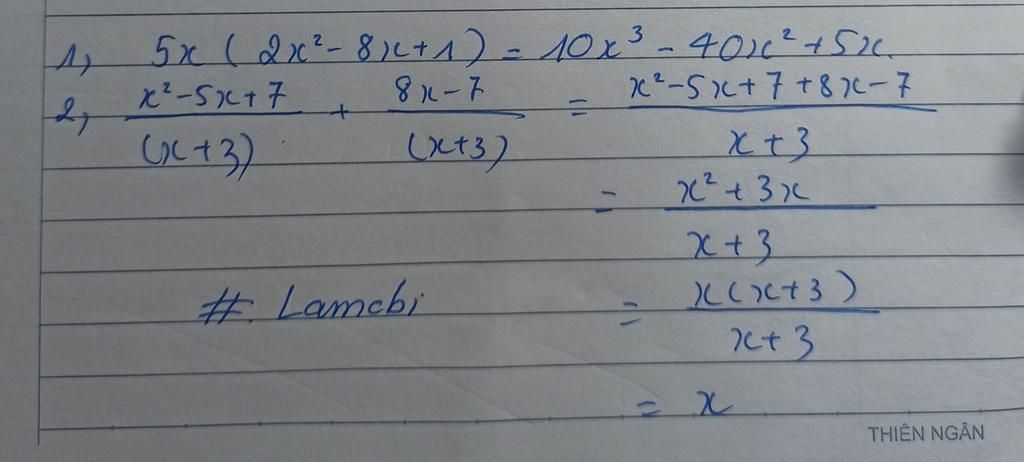 1, 5x ( 2x² - 8x + 1 ) = 10x³ - 40x² + 5x.
2, (x² - 5x + 7)/((x + 3)) + (8x - 7)/((x + 3)) = (x² - 5x + 7 + 8x - 7)/(x + 3)
= (x² + 3x)/(x + 3)
#. Lamcbi = (x(x + 3))/(x + 3)
= x
THIÊN NGÂN